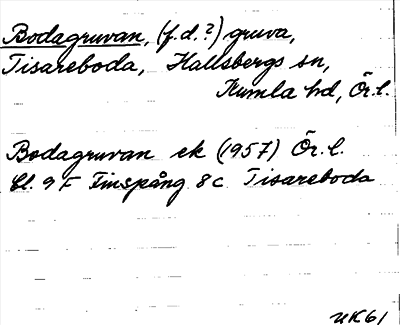 Bodagruvan, (f.d.?) gruva,
Tisareboda, Hallsbergs sn,
Kumla hd, Ör.l.
Bodagruvan ek (1957) Ör.l.
Bl. 9F Finspång 8c Tisareboda
UK61